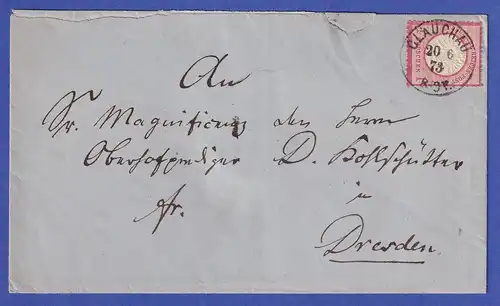 GLAUCHAU
20 6
73
An
Sr. Magnificenz den Herrn
Oberhofprediger D. Kohlschütter
fr.
in
Dresden.